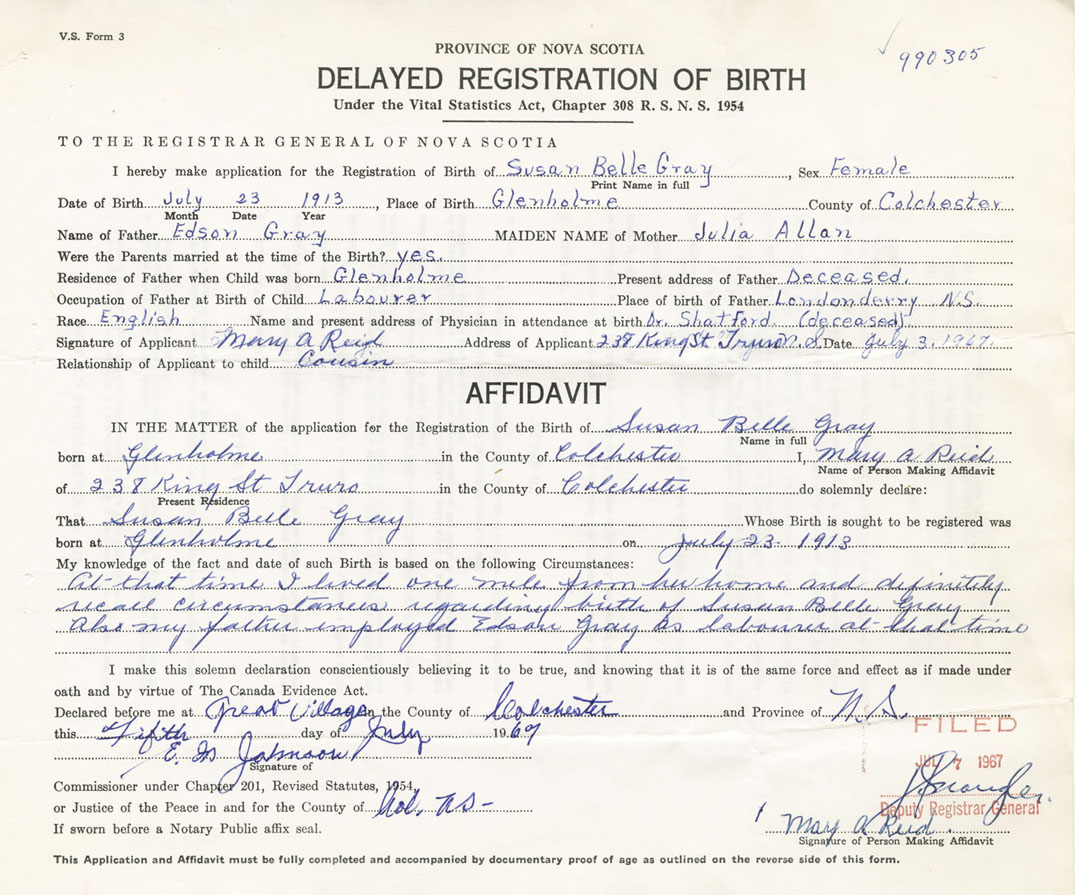 V.S. Form 3
990305
PROVINCE OF NOVA SCOTIA
DELAYED REGISTRATION OF BIRTH
Under the Vital Statistics Act, Chapter 308 R. S. N. S. 1954
TO THE REGISTRAR GENERAL OF NOVA SCOTIA
I hereby make application for the Registration of Birth of Susan Belle Gray, Sex Female
Print Name in full
Date of Birth July 23 1913, Place of Birth Glenholme County of Colchester
Month Date Year
Name of Father Edson Gray MAIDEN NAME of Mother Julia Allan
Were the Parents married at the time of the Birth? yes.
Residence of Father when Child was born Glenholme Present address of Father Deceased.
Occupation of Father at Birth of Child Labourer Place of birth of Father Londonderry N.S.
Race English Name and present address of Physician in attendance at birth Dr. Shatford (deceased)
Signature of Applicant Mary A Reid Address of Applicant 238 King St Truro N.S. Date July 3, 1967.
Relationship of Applicant to child Cousin
AFFIDAVIT
IN THE MATTER of the application for the Registration of the Birth of Susan Belle Gray
Name in full
born at Glenholme in the County of Colchester I, Mary A Reid
Name of Person Making Affidavit
of 238 King St Truro in the County of Colchester do solemnly declare:
Present Residence
That Susan Belle Gray Whose Birth is sought to be registered was
born at Glenholme on July 23 1913
My knowledge of the fact and date of such Birth is based on the following Circumstances:
At that time I lived one mile from her home and definitely
recall circumstances regarding birth of Susan Belle Gray
Also my father employed Edson Gray as labourer at that time
I make this solemn declaration conscientiously believing it to be true, and knowing that it is of the same force and effect as if made under
oath and by virtue of The Canada Evidence Act.
Declared before me at Great Village in the County of Colchester and Province of N.S.
this Fifth day of July 1967
FILED
E. M Johnson
Signature of
JUL 7 1967
Commissioner under Chapter 201, Revised Statutes, 1954,
or Justice of the Peace in and for the County of Col. NS -
Deputy Registrar General
Mary A Reid
If sworn before a Notary Public affix seal.
Signature of Person Making Affidavit
This Application and Affidavit must be fully completed and accompanied by documentary proof of age as outlined on the reverse side of this form.